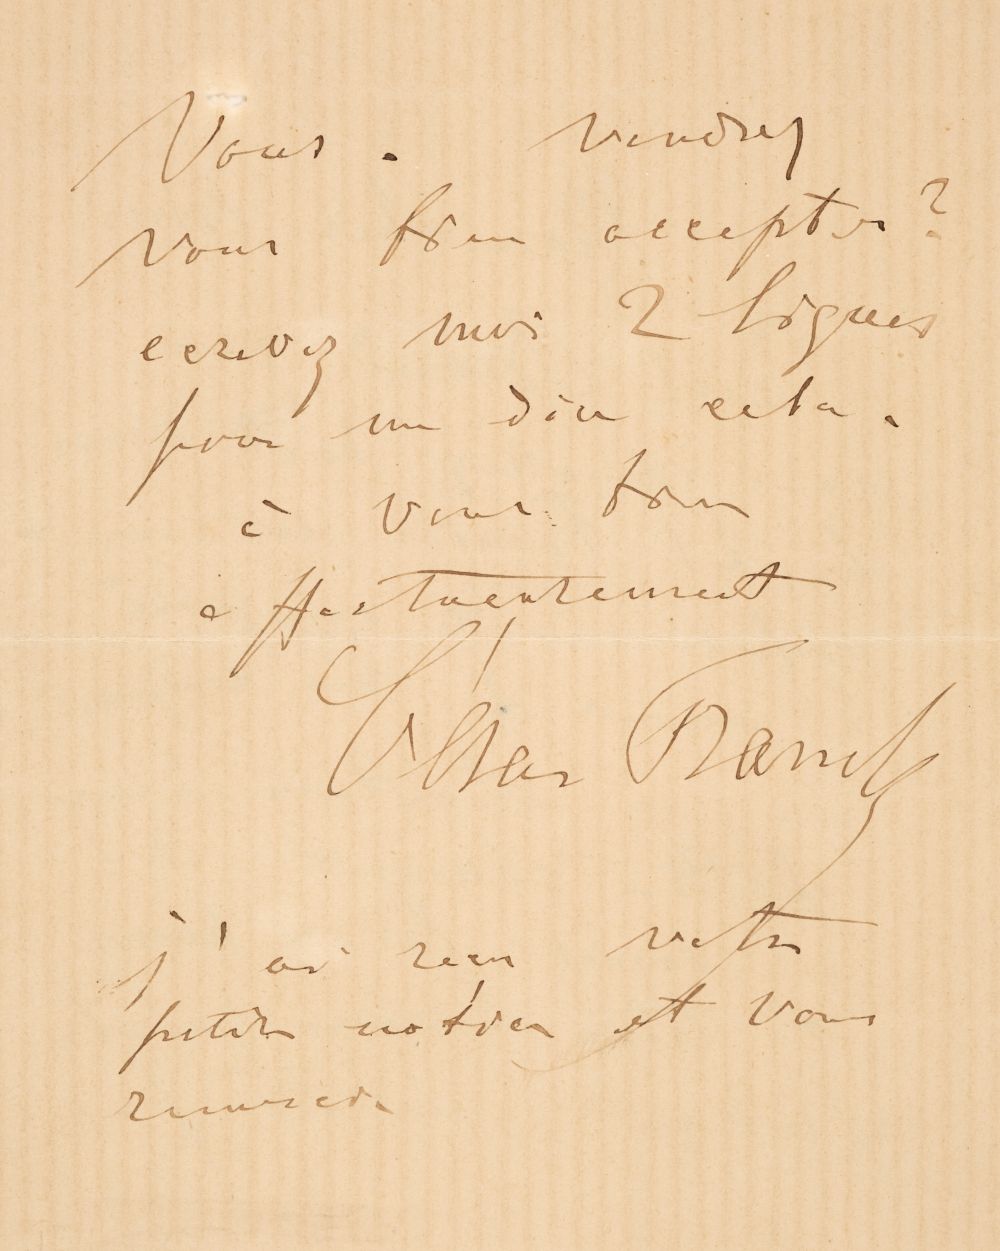 Vous. vendrez
vous bien accepter?
ecrivez moi 2 lignes
pour me dire cela.
à vous bien
affectueusement
César Franck
j'ai reçu votre
petite notice et vous
remercie.